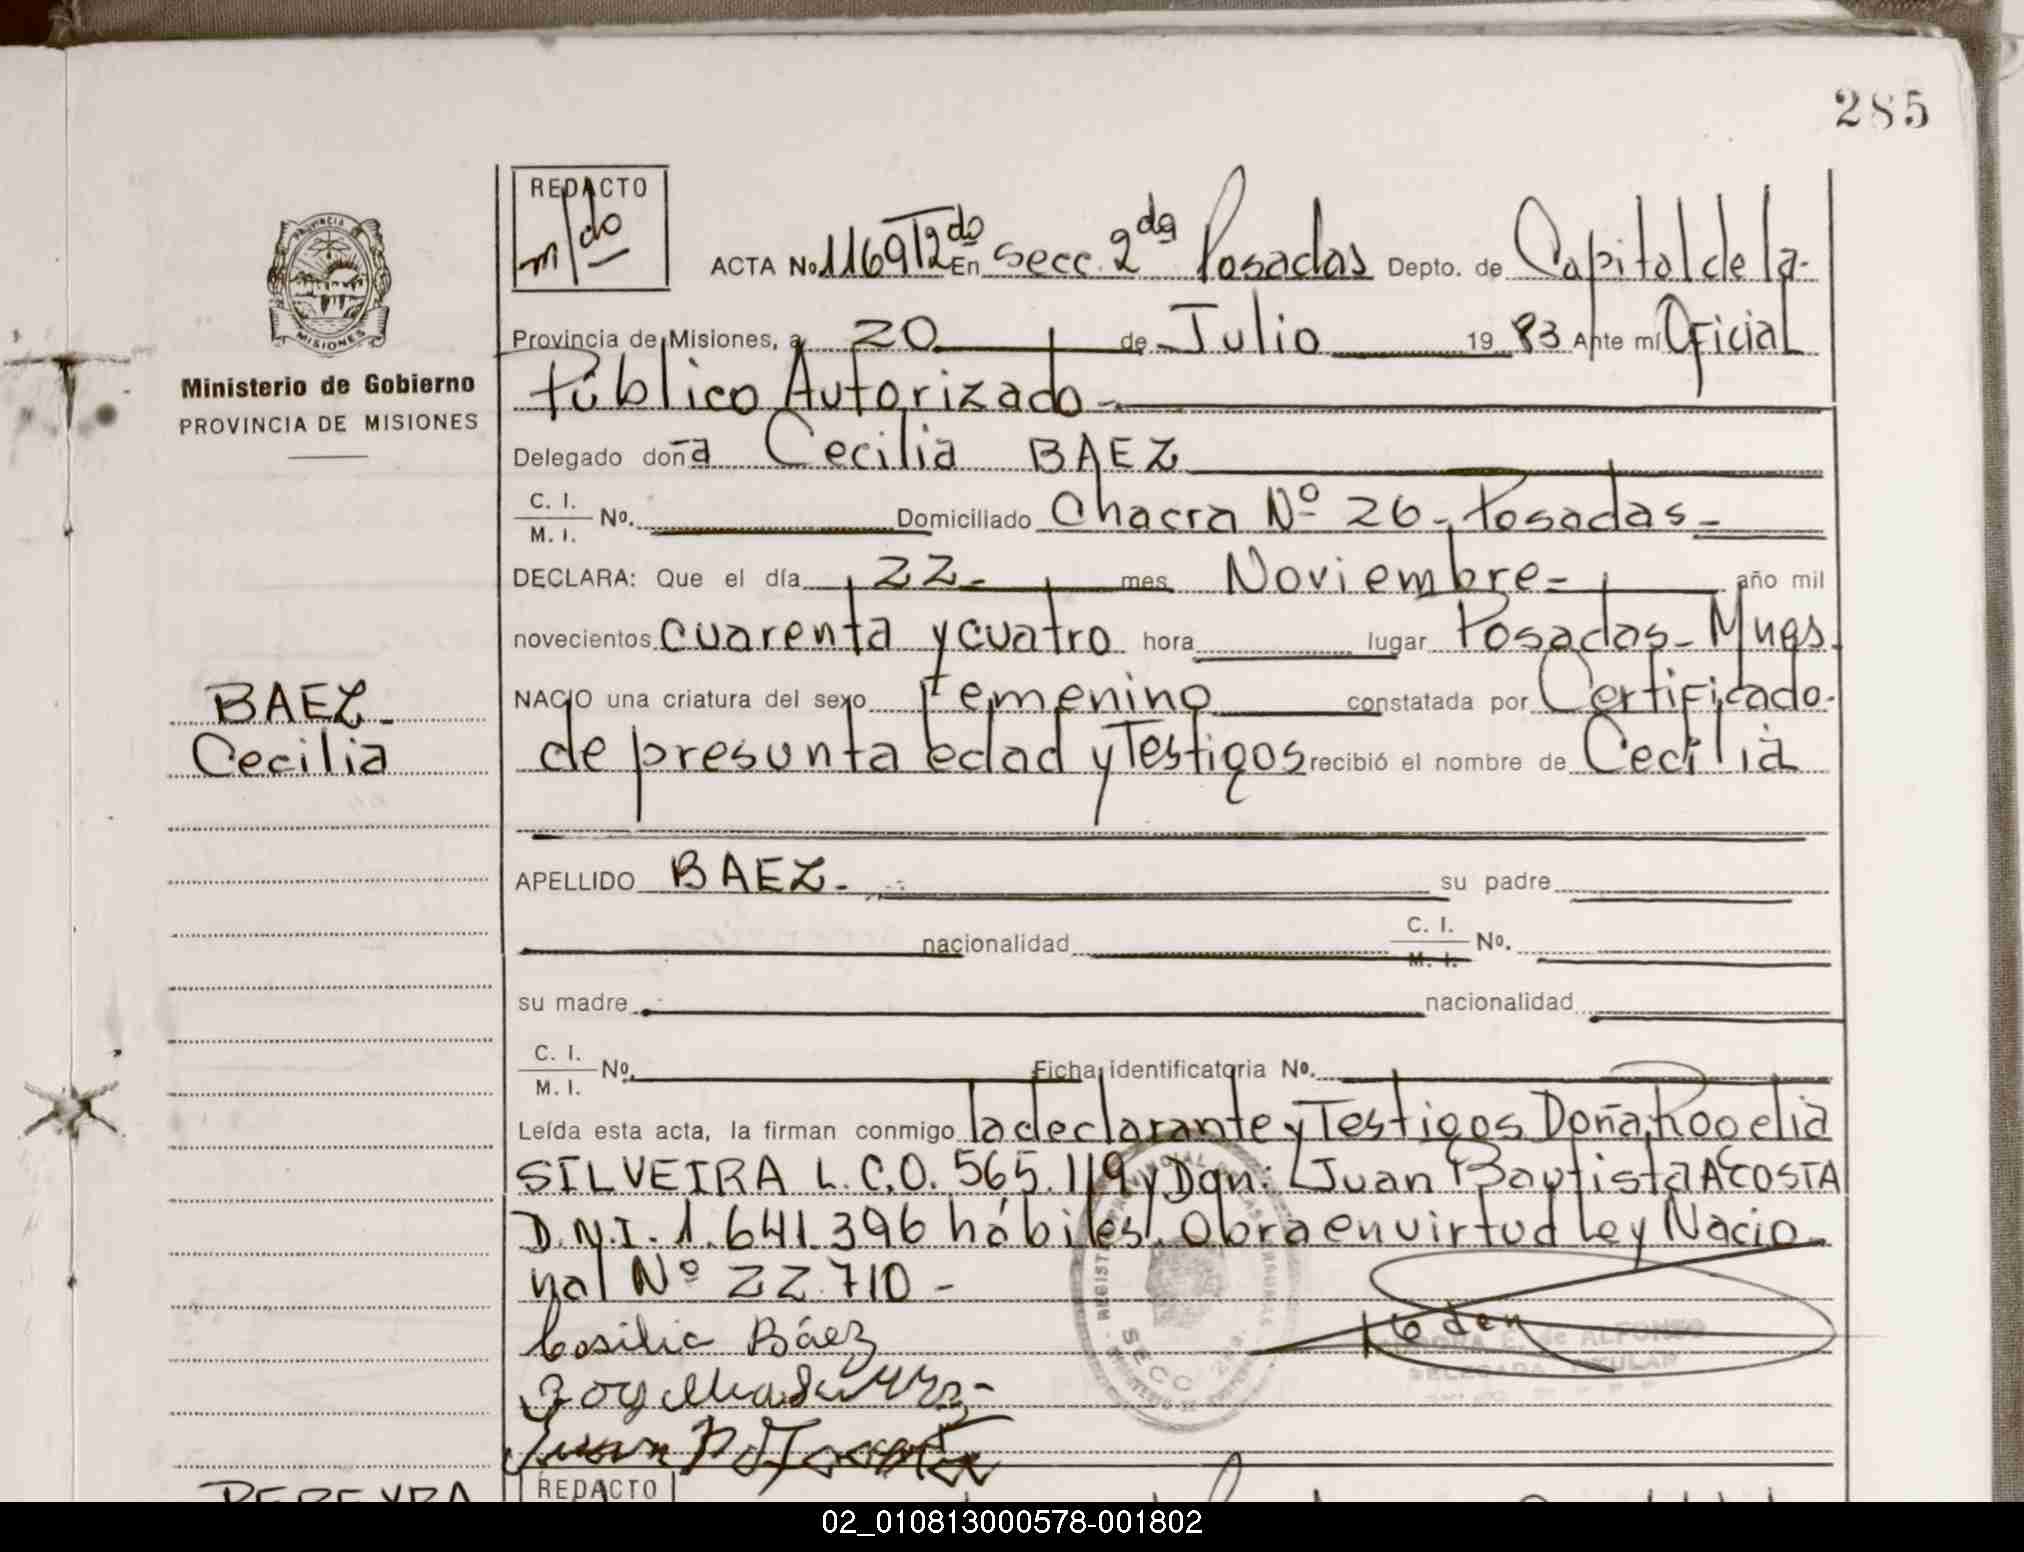 285
REDACTO
m/do
ACTA No. 1169 T 2do En Secc. 2da Posadas Depto. de Capital de la-
Provincia de Misiones, a 20 de Julio 1983 Ante mí Oficial
Público Autorizado-
Delegado doña Cecilia BAEZ
C. I. M. I. No. Domiciliado Chacra Nº 26-, Posadas-
DECLARA: Que el día 22- mes Noviembre- año mil
novecientos cuarenta y cuatro hora lugar Posadas- Mnes.
NACIO una criatura del sexo femenino constatada por Certificado-
de presunta edad y Testigos recibió el nombre de Cecilia
APELLIDO BAEZ- su padre
nacionalidad C. I. M. I. No.
su madre nacionalidad
C. I. M. I. No. Ficha identificatoria No.
Leída esta acta, la firman conmigo la declarante y Testigos Doña Rogelia
SILVEIRA L.C.O. 565.119 y Don: Juan Bautista ACOSTA
D.N.I. 1.641.396 hábiles. Obra en virtud Ley Nacio-
nal Nº 22.710-
Báez
SECC 2da.
E. de ALFONSO
DELEGADA TITULAR
REDACTO
PROVINCIA DE
MISIONES
Ministerio de Gobierno
PROVINCIA DE MISIONES
BAEZ-
Cecilia
PEREYRA
02_010813000578-001802